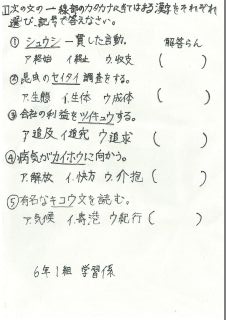 Ⅱ次の文の一線部のカタカナにあてはまる漢字をそれぞれ
選び、記号で答えなさい。
① シュウシ一貫した言動。 解答らん
ア.終始 イ.終止 ウ.収支 ( )
② 昆虫のセイタイ調査をする。
ア.生態 イ.生体 ウ.成体 ( )
③ 会社の利益をツイキュウする。
ア.追及 イ.追究 ウ.追求 ( )
④ 病気がカイホウに向かう。
ア.解放 イ.快方 ウ.介抱 ( )
⑤ 有名なキコウ文を読む。
ア.気候 イ.寄港 ウ.紀行 ( )
6年1組 学習係